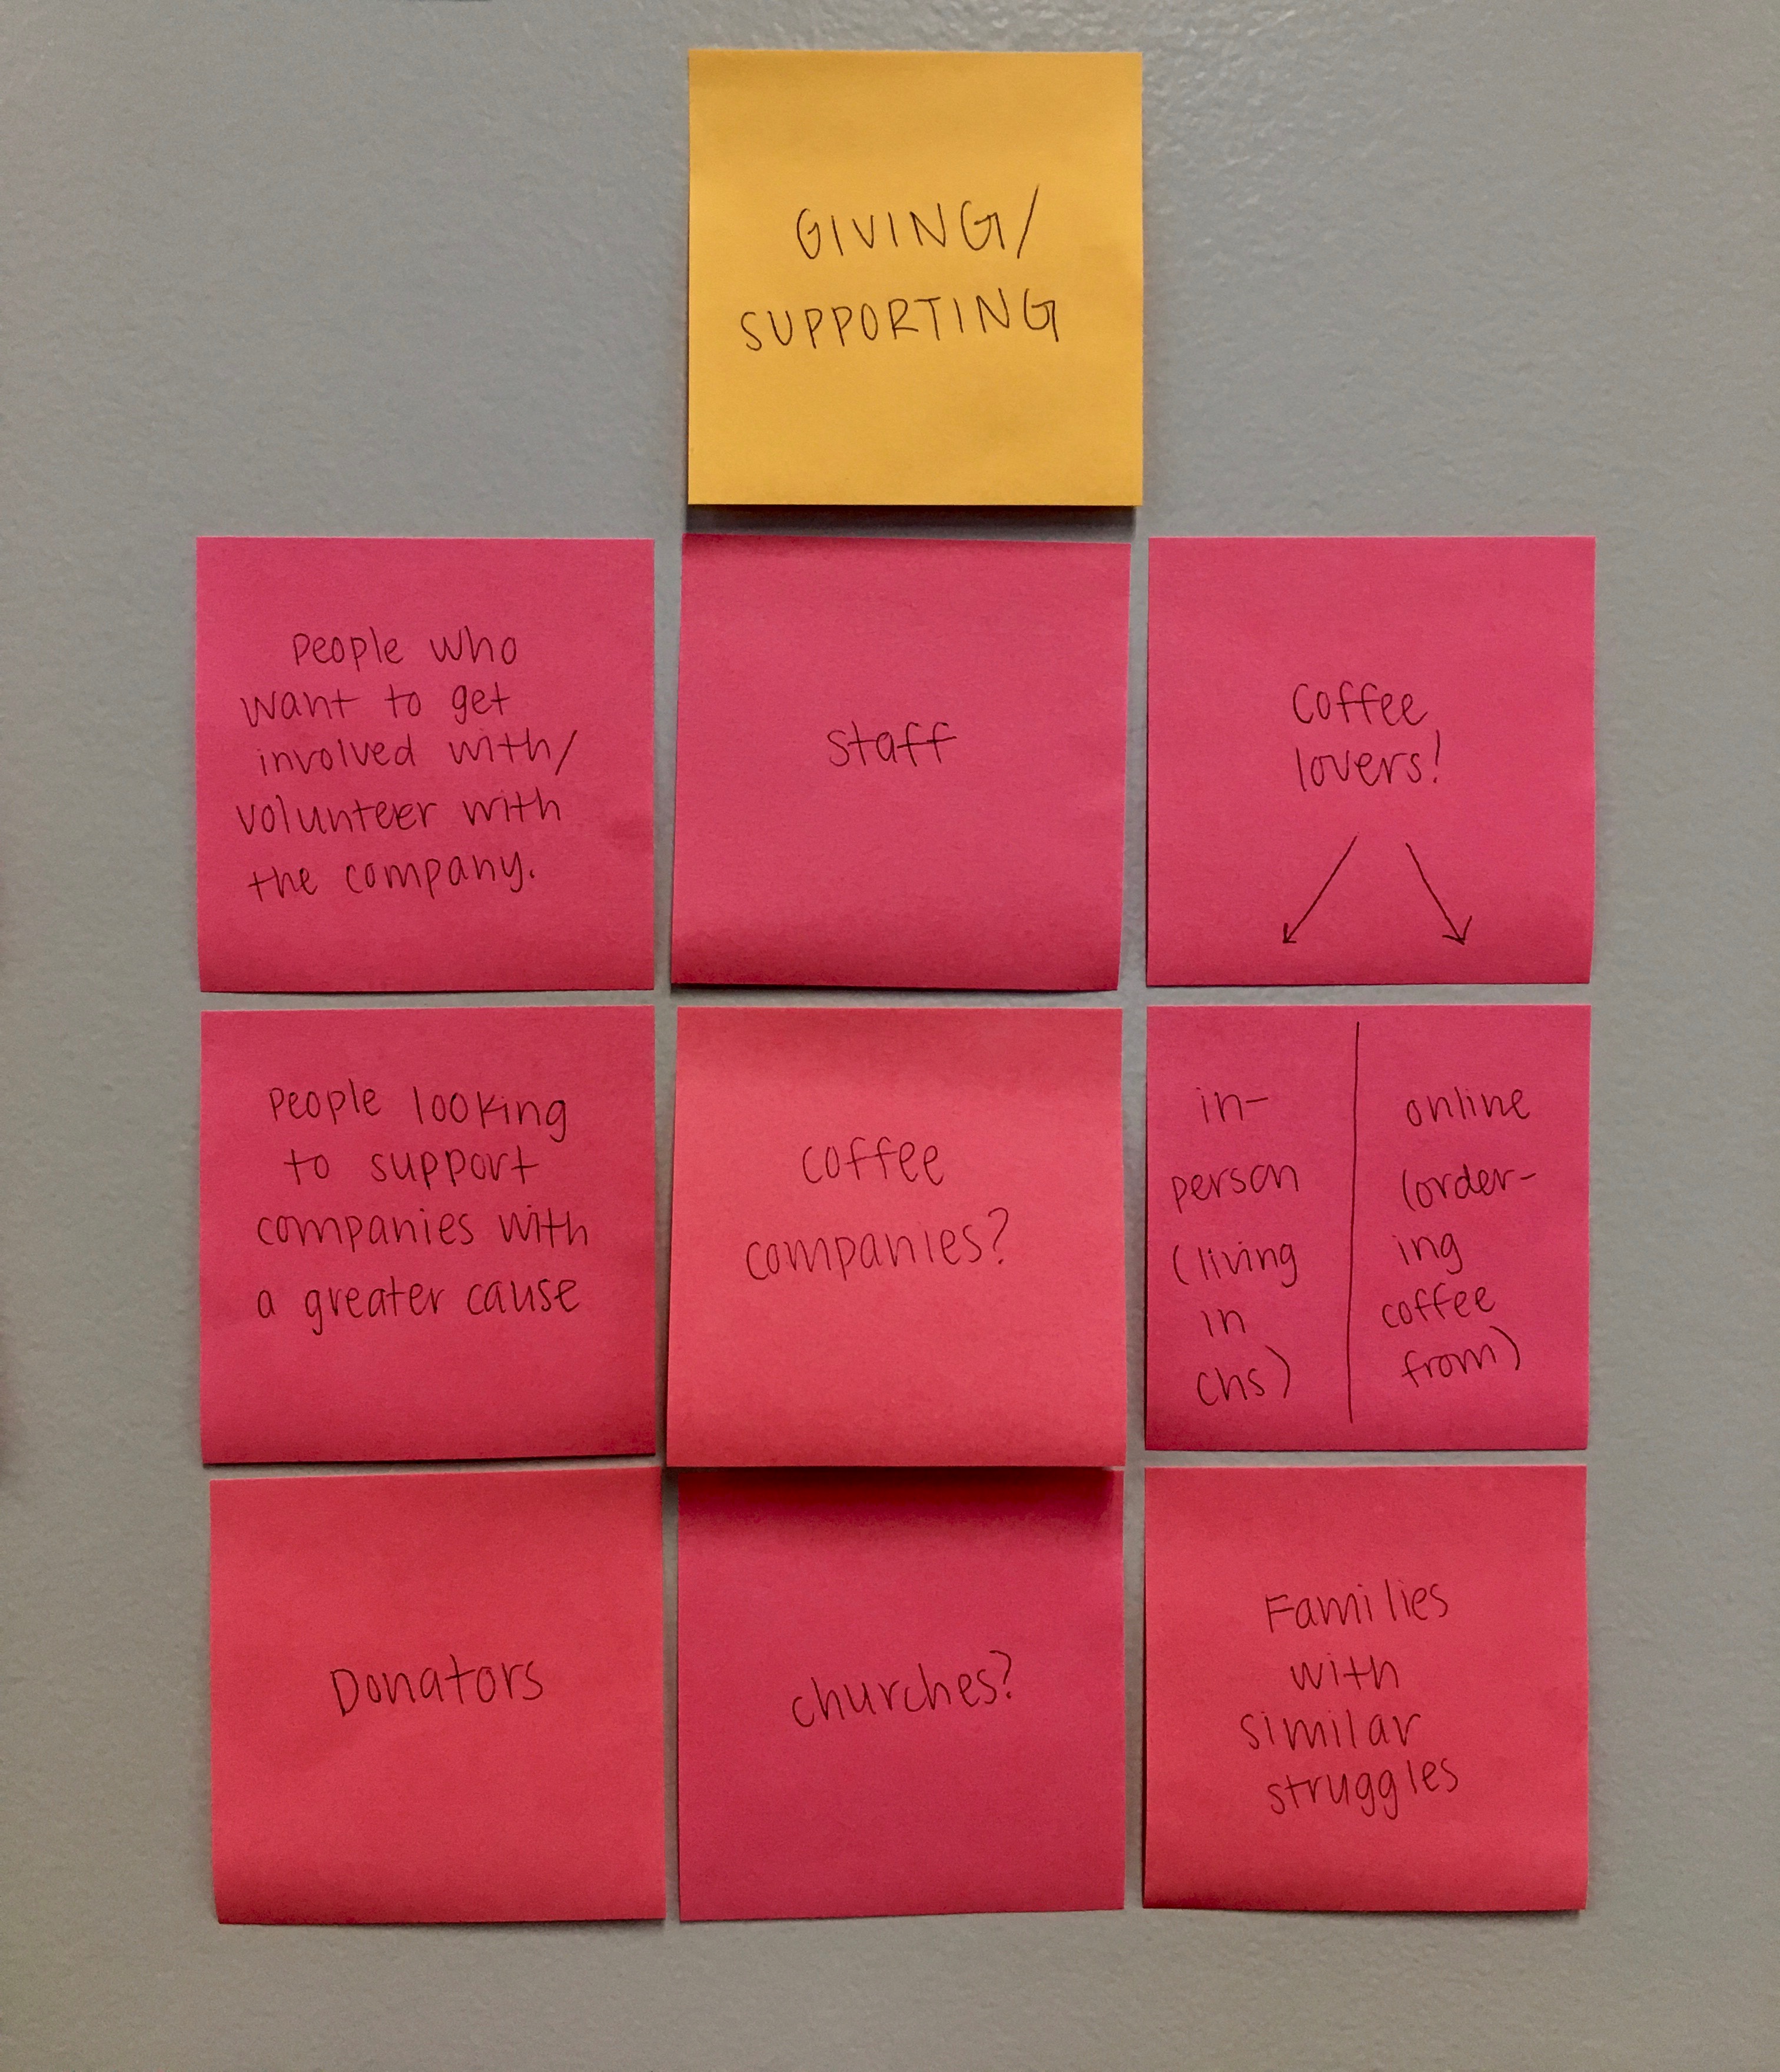 GIVING/
SUPPORTING
People who
want to get
involved with/
volunteer with
the company.
staff
Coffee
lovers!
People looking
to support
companies with
a greater cause
coffee
companies?
in-
person
(living
in
chs)
online
(order-
ing
coffee
from)
Donators
churches?
Families
with
similar
struggles